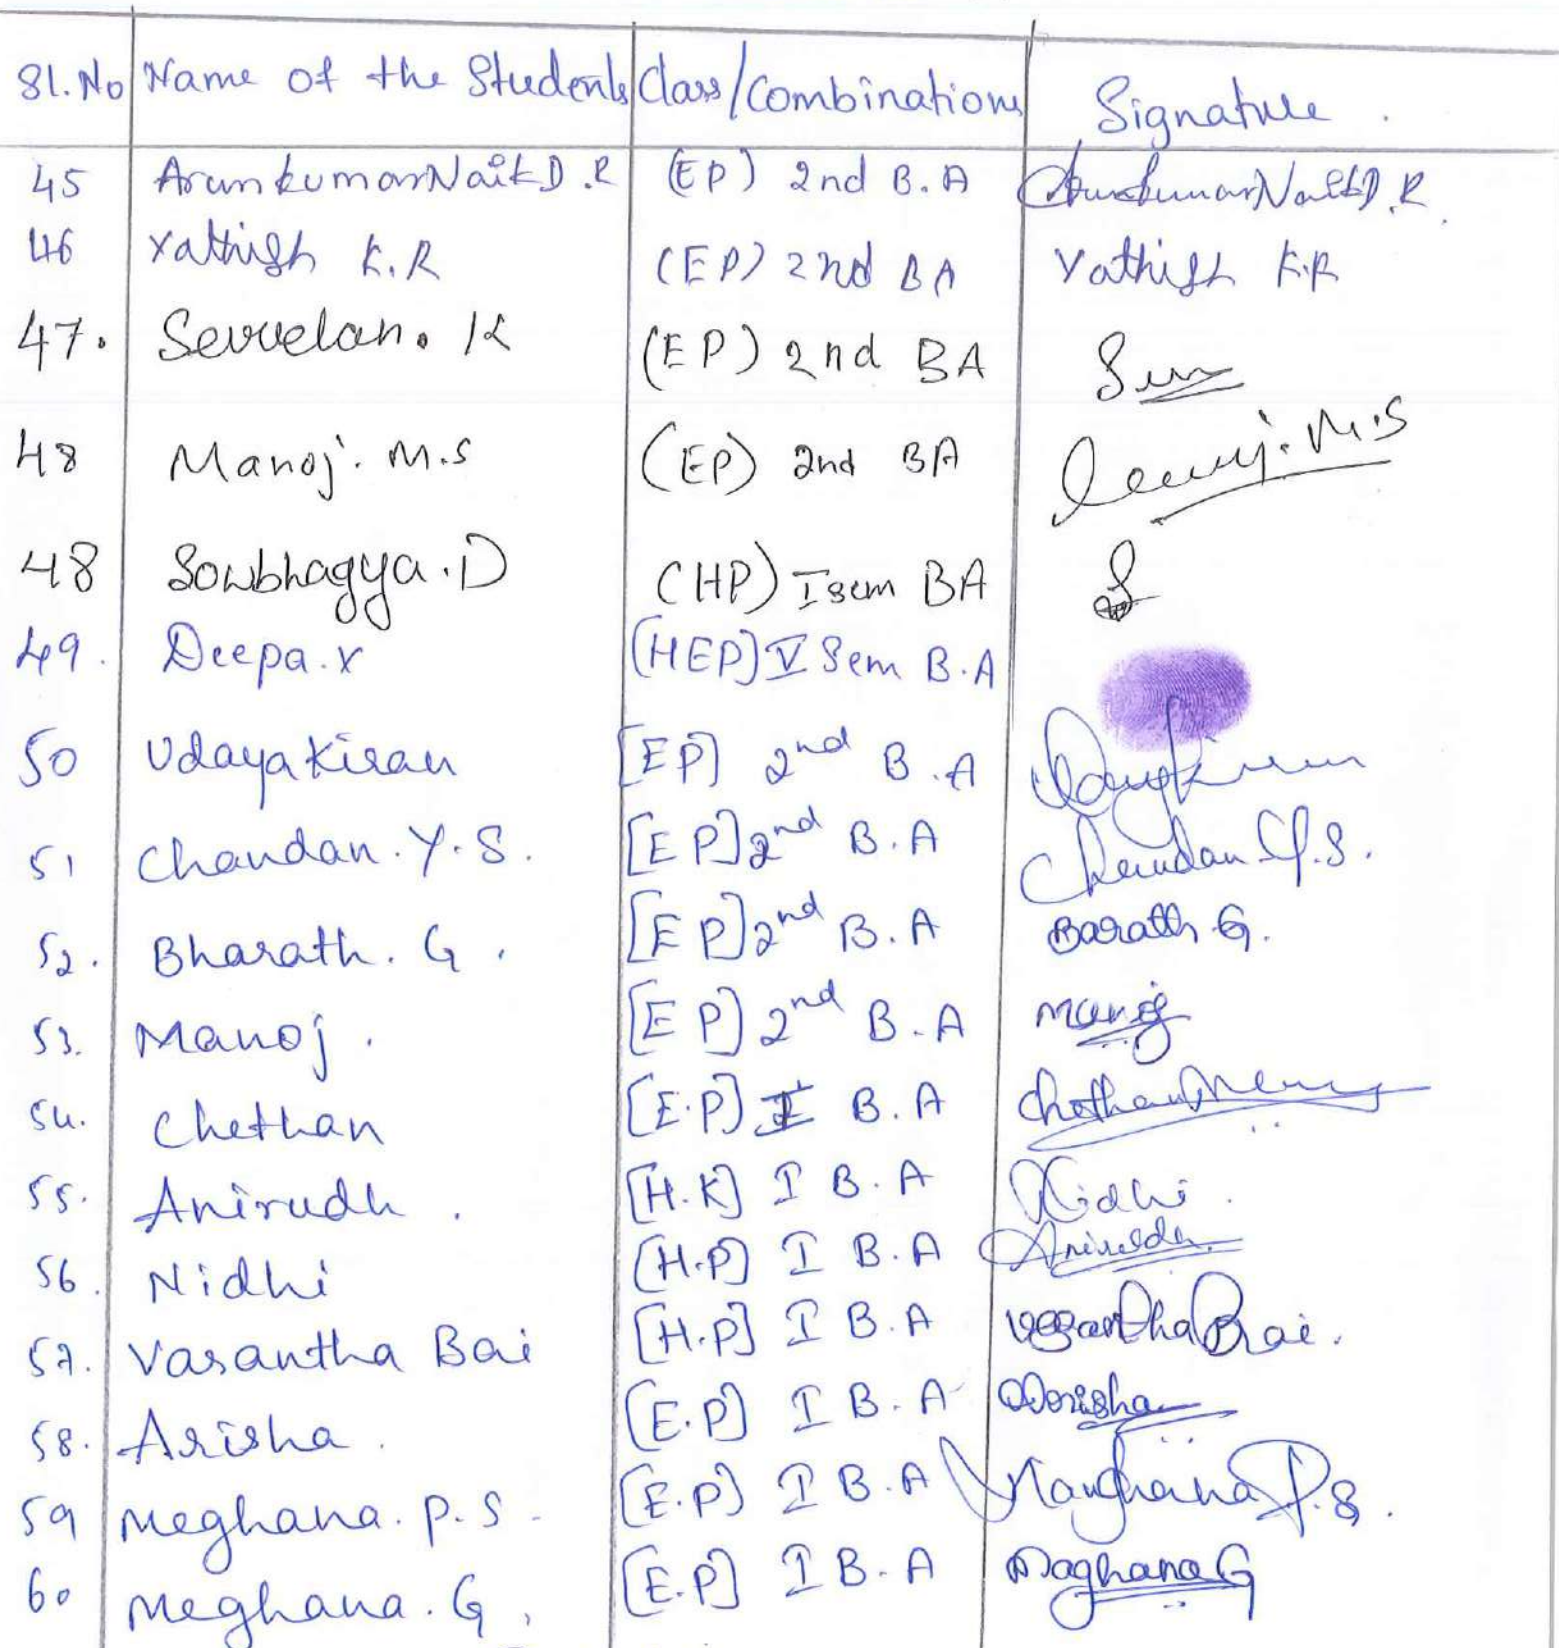 Sl.No Name of the Students Class/Combinations Signature.
45 ArunkumarNaikD.R (EP) 2nd B.A ArunkumarNaikD.R.
46 Yathish K.R (EP) 2nd BA Yathish K.R
47. K (EP) 2nd BA
48 Manoj. M.S (EP) 2nd BA Manoj. M.S
48 Sowbhagya.D (HP) I sem BA S
49. Deepa.Y [HEP] V Sem B.A
50 Udayakiran [EP] 2nd B.A
51 Chandan. Y.S. [EP] 2nd B.A Chandan Y.S.
52. Bharath. G. [EP] 2nd B.A Barath G.
53. Manoj. [EP] 2nd B.A Manoj
54. Chethan [E.P] I B.A
55. Anirudh. [H.K] I B.A Nidhi.
56. Nidhi [H.P] I B.A
57. Vasantha Bai [H.P] I B.A Vasantha Bai.
58. Arisha. [E.P] I B.A Arisha
59 Meghana. P.S. [E.P] I B.A P.S.
60 Meghana. G. [E.P] I B.A Maghana G